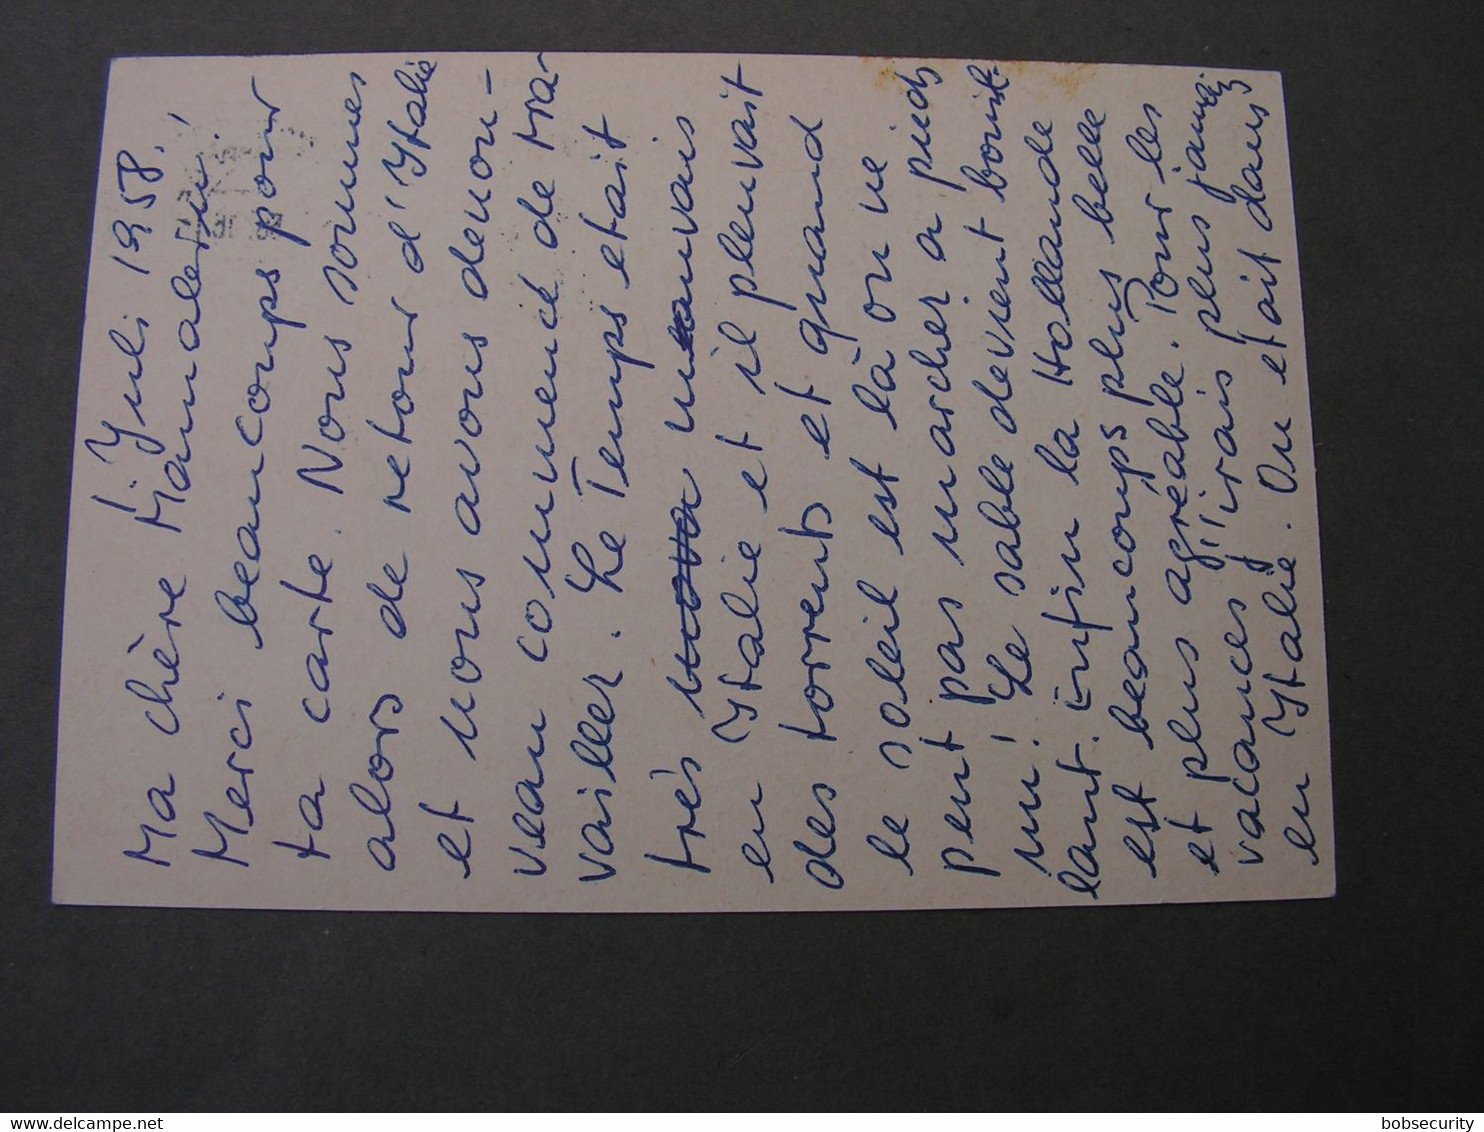 1. Juli 1958.
Ma chère Mamalerni!
Merci beaucoups pour
ta carte. Nous sommes
alors de retour d'Italie
et nous avons denou-
veau commencé de tra-
vailler. Le Temps etait
très mauvais
en Italie et il pleuvait
des torrents et quand
le soleil est là on ne
peut pas marcher a pieds
nu! Le sable devient bouil-
lant. Enfin la Hollande
est beaucoups plus belle
et plus agréable. Pour les
vacances j'irais plus jamais
en Italie. On etait dans
bobsecurity